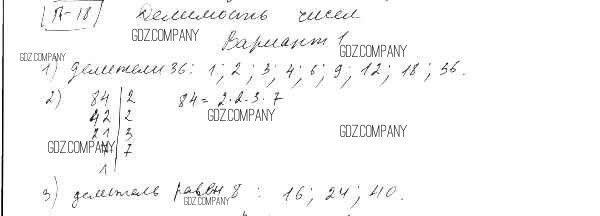 П-18 Делимость чисел
GDZ.COMPANY
Вариант 1
GDZ.COMPANY
GDZ.COMPANY
1) делители 36: 1; 2; 3; 4; 6; 9; 12; 18; 36.
2) 84|2 84 = 2·2·3·7
42|2
GDZ.COMPANY
21|3
GDZ.COMPANY
7|7
GDZ.COMPANY
1
3) делитель равен 8: 16; 24; 40.
GDZ.COMPANY